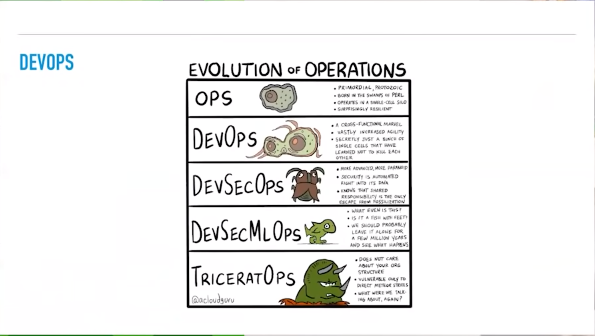 DEVOPS
EVOLUTION OF OPERATIONS
OPS
• PRIMORDIAL, PROTOZOIC
• BORN IN THE SWAMPS OF PERL
• OPERATES IN A SINGLE-CELL SILO
• SURPRISINGLY RESILIENT
DEVOPS
• A CROSS-FUNCTIONAL MARVEL
• VASTLY INCREASED AGILITY
• SECRETLY JUST A BUNCH OF
SINGLE CELLS THAT HAVE
LEARNED NOT TO KILL EACH
OTHER
DEVSECOPS
• MORE ADVANCED, MORE PARANOID
• SECURITY IS AUTOMATED
RIGHT INTO ITS
• KNOWS THAT SHARED
RESPONSIBILITY IS THE ONLY
ESCAPE FROM FOSSILIZATION
DEVSECMLOPS
• WHAT EVEN IS THIS?
• IS IT A FISH WITH FEET?
• WE SHOULD PROBABLY
LEAVE IT ALONE FOR
A FEW MILLION YEARS
AND SEE WHAT HAPPENS
TRICERATOPS
• DOES NOT CARE
ABOUT YOUR ORG
STRUCTURE
• VULNERABLE ONLY TO
DIRECT METEOR STRIKES
• WHAT WERE WE TALK-
ING ABOUT, AGAIN?
@acloudguru